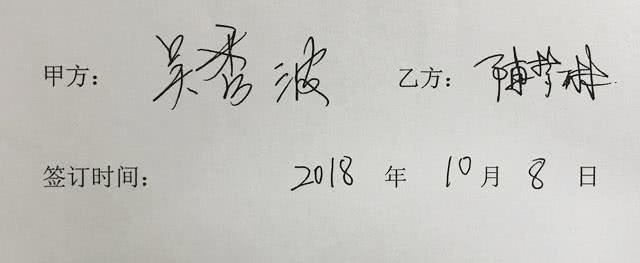 甲方： 吴秀波 乙方：
签订时间： 2018 年 10 月 8 日